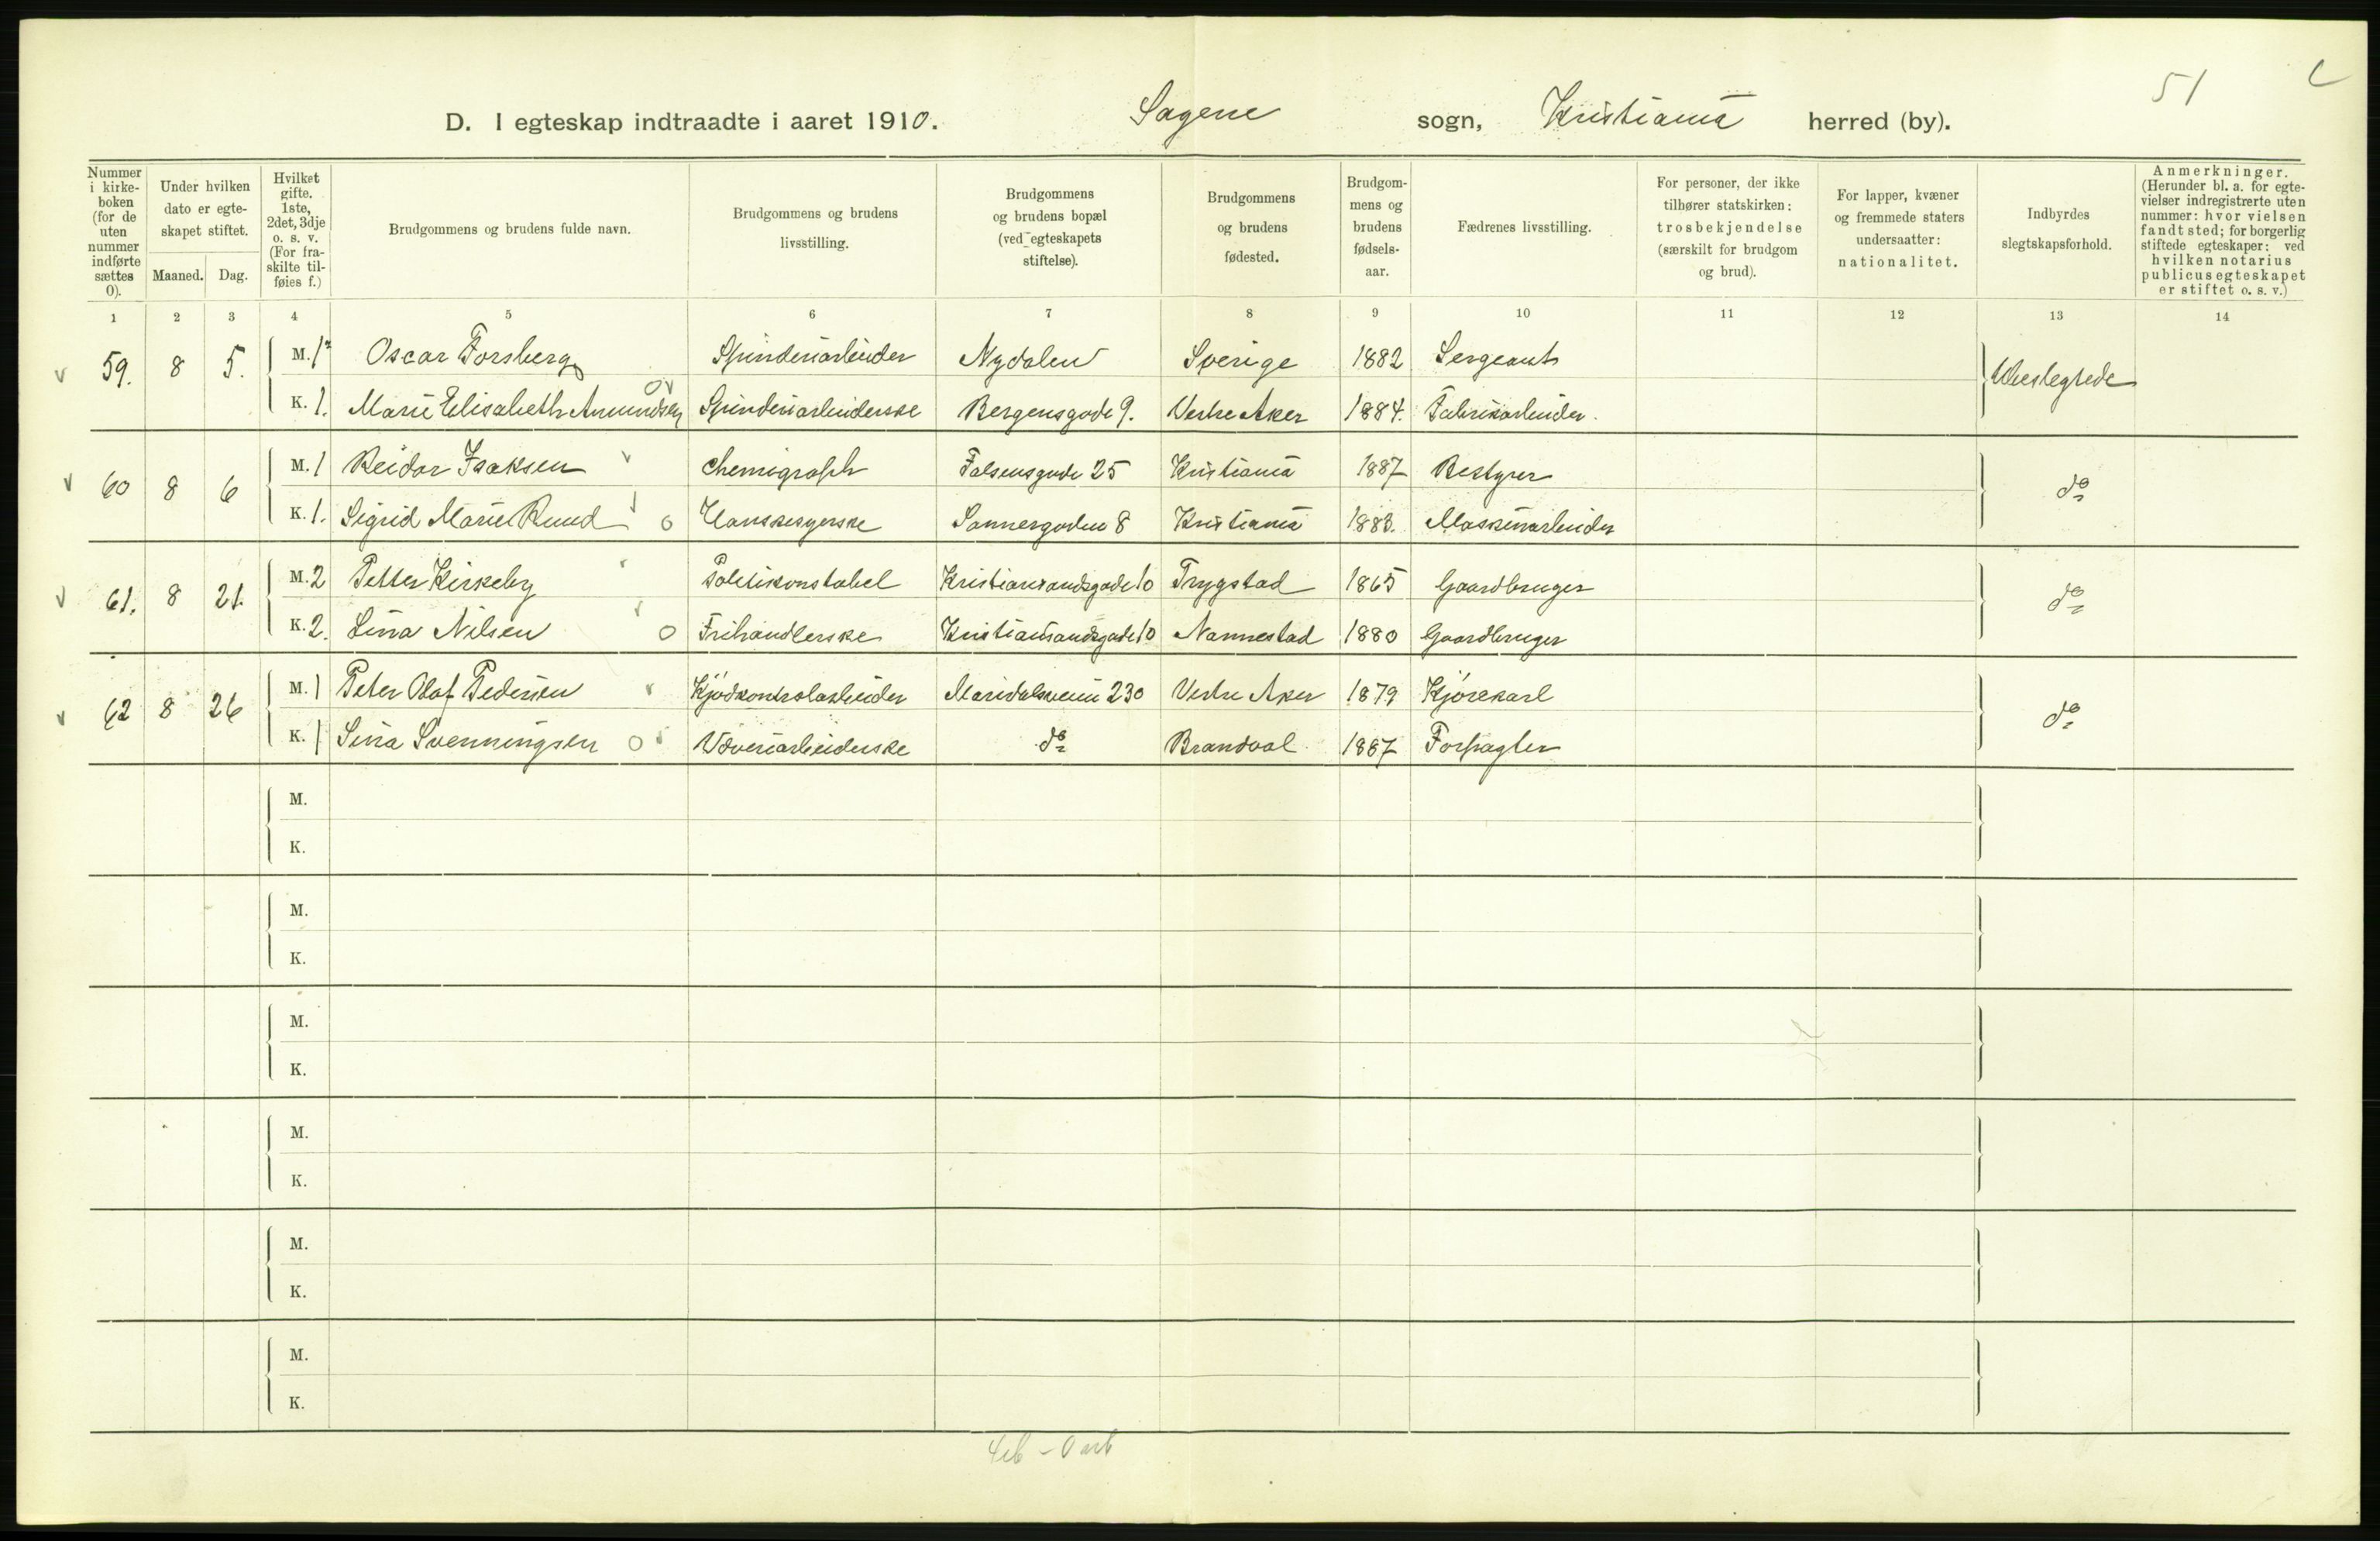 51
D. I egteskap indtraadte i aaret 1910. Sagene sogn, Kristiania herred (by).
Nummer i kirke-boken (for de uten nummer indførte sættes 0).
Under hvilken dato er egte-skapet stiftet.
Maaned. Dag.
Hvilket gifte. 1ste, 2det, 3dje o. s. v. (For fra-skilte til-føies f.)
Brudgommens og brudens fulde navn.
Brudgommens og brudens livsstilling.
Brudgommens og brudens bopæl (ved egteskapets stiftelse).
Brudgommens og brudens fødested.
Brudgom-mens og brudens fødsels-aar.
Fædrenes livsstilling.
For personer, der ikke tilhører statskirken: trosbekjendelse (særskilt for brudgom og brud).
For lapper, kvæner og fremmede staters undersaatter: nationalitet.
Indbyrdes slegtskapsforhold.
Anmerkninger. (Herunder bl. a. for egte-vielser indregistrerte uten nummer: hvor vielsen fandt sted; for borgerlig stiftede egteskaper: ved hvilken notarius publicus egteskapet er stiftet o. s. v.)
1 2 3 4 5 6 7 8 9 10 11 12 13 14
59. 8 5. M. 1 Oscar Forsberg Spinderiarbeider Nydalen Sverige 1882 Sergeant Ubeslegtede
K. 1. Marie Elisabeth Amundsen Spinderiarbeiderske Bergensgade 9. Vestre Aker 1884. Fabrikarbeider.
60 8 6 M. 1 Reidar Isaksen Chemigraph Falsensgade 25 Kristiania 1887 Bestyrer do
K. 1. Sigrid Marie Ruud Hanskesyerske Sannergaden 8 Kristiania 1883. Maskinarbeider
61. 8 21. M. 2 Petter Kirkeby Politikonstabel Kristiansandsgade 10 Trygstad 1865 Gaardbruger do
K. 2. Lina Nilsen Frihandlerske Kristiansandsgade 10 Nannestad 1880 Gaardbruger
62 8 26 M. 1 Peter Olaf Pedersen Kjødkontrolarbeider Maridalsveien 230 Vestre Aker 1879 Kjørekarl do
K. 1 Sina Svenningsen Væveriarbeiderske do Brandval 1887 Forpagter
M.
K.
M.
K.
M.
K.
M.
K.
M.
K.
M.
K.